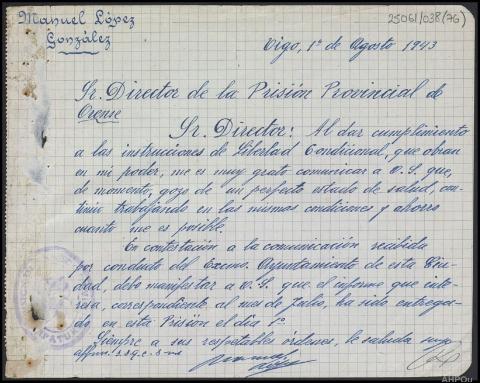 Manuel López
González
25061/038(76)
Vigo, 1º de Agosto 1943
Sr. Director de la Prisión Provincial de
Orense
Sr. Director: Al dar cumplimiento
a las instrucciones de Libertad Condicional, que obran
en mi poder, me es muy grato comunicar a V.S. que,
de momento, gozo de un perfecto estado de salud, con-
tinúo trabajando en las mismas condiciones y ahorro
cuanto me es posible.
En contestación a la comunicación recibida
por conducto del Excmo. Ayuntamiento de esta Ciu-
dad, debo manifestar a V.S. que el informe que inte-
resa, correspondiente al mes de Julio, ha sido entrega-
do, en esta Prisión el día 1º
Siempre a sus respetables órdenes, le saluda suyo
affmo. s.s.q.e.s.m
AHPOu